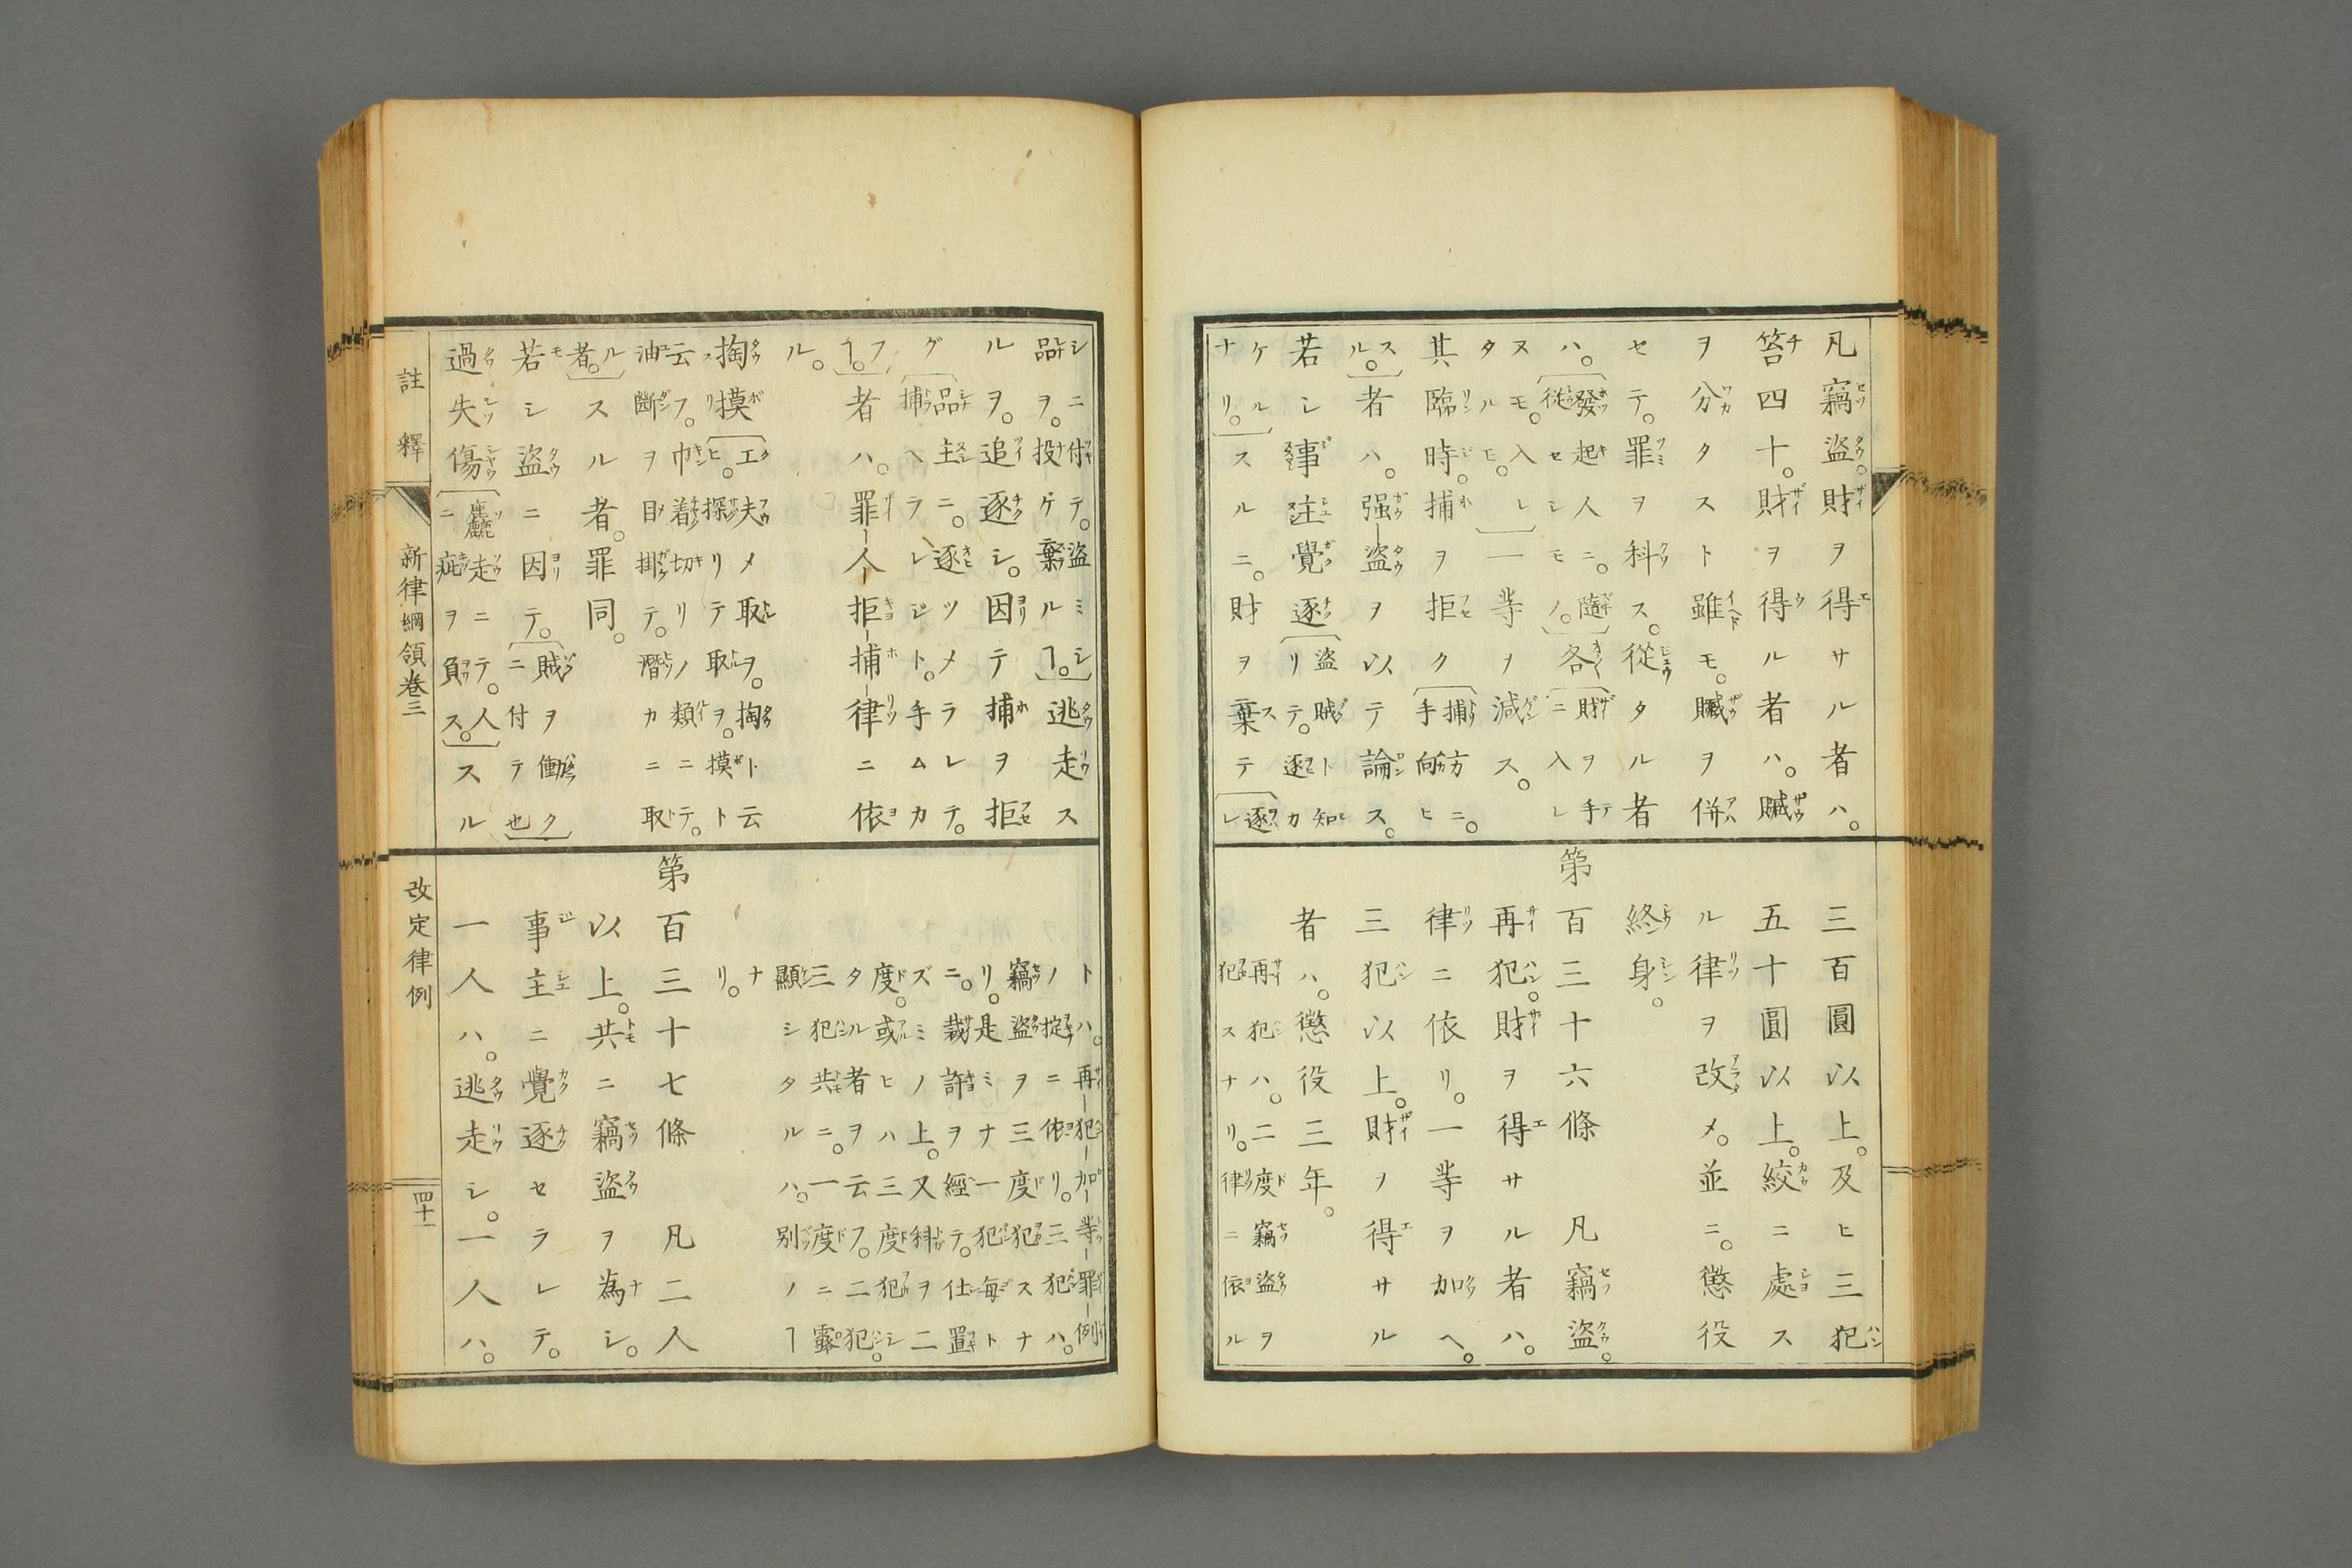 凡竊盜。財ヲ得サル者ハ。
笞四十。財ヲ得ル者ハ。贓
ヲ分タスト雖モ。贓ヲ併
セテ。罪ヲ科ス。從タル者
ハ。發起人ニ。隨從セシモノ。各財ヲ手ニ入レ
ヌモ。入レタルモ。一等ヲ減ス。
其臨時。捕ヲ拒ク捕方ニ。手向ヒ
スル。者ハ。强盜ヲ以テ論ス。
若シ事主覺逐盜賊ト知リテ。逐カ
ケルナリ。スルニ。財ヲ棄テ逐レ
三百圓以上。及ヒ三犯
五十圓以上。絞ニ處ス
ル律ヲ改メ。並ニ。懲役
終身。
第百三十六條 凡竊盜。
再犯。財ヲ得サル者ハ。
律ニ依リ。一等ヲ加ヘ。
三犯以上。財ヲ得サル
者ハ。懲役三年。
再犯ハ。二度竊盜ヲ
犯スナリ。律ニ依ル
シニ付テ。盜ミシ品ヲ。投ケ棄ルヿ。逃走ス
ルヲ。追逐シ。因テ捕ヲ拒
グ品主ニ。逐ツメラレテ。捕ヘラレジト。手ムカ
フヿ。者ハ。罪人拒捕律ニ依
ル。
掏摸工夫メ取ヲ。掏ト云ヒ。探リテ取ヲ。摸ト
云フ。巾着切リノ類ニテ。油斷ヲ目掛テ。潛カニ取
ル者。スル者。罪同。
若シ盜ニ因テ。賊ヲ働クニ付テ也
過失傷麤走ニテ。人ニ疵ヲ負ススル
トハ。再犯加等罪例
ノ掟ニ依リ。三犯ハ。
竊盜ヲ三度犯スナ
リ。是ミナ一犯毎ト
ニ。裁許ヲ經テ。仕置
ズミノ上。又科ヲ二
度。或ヒハ三度犯シ
タル者ヲ云フ。二犯。
三犯共ニ。一度ニ露
顯シタルハ。別ノヿ
ナリ。
第百三十七條 凡二人
以上。共ニ竊盜ヲ為シ。
事主ニ覺逐セラレテ。
一人ハ。逃走シ。一人ハ。
註釋 新律綱領卷三 改定律例 四十一